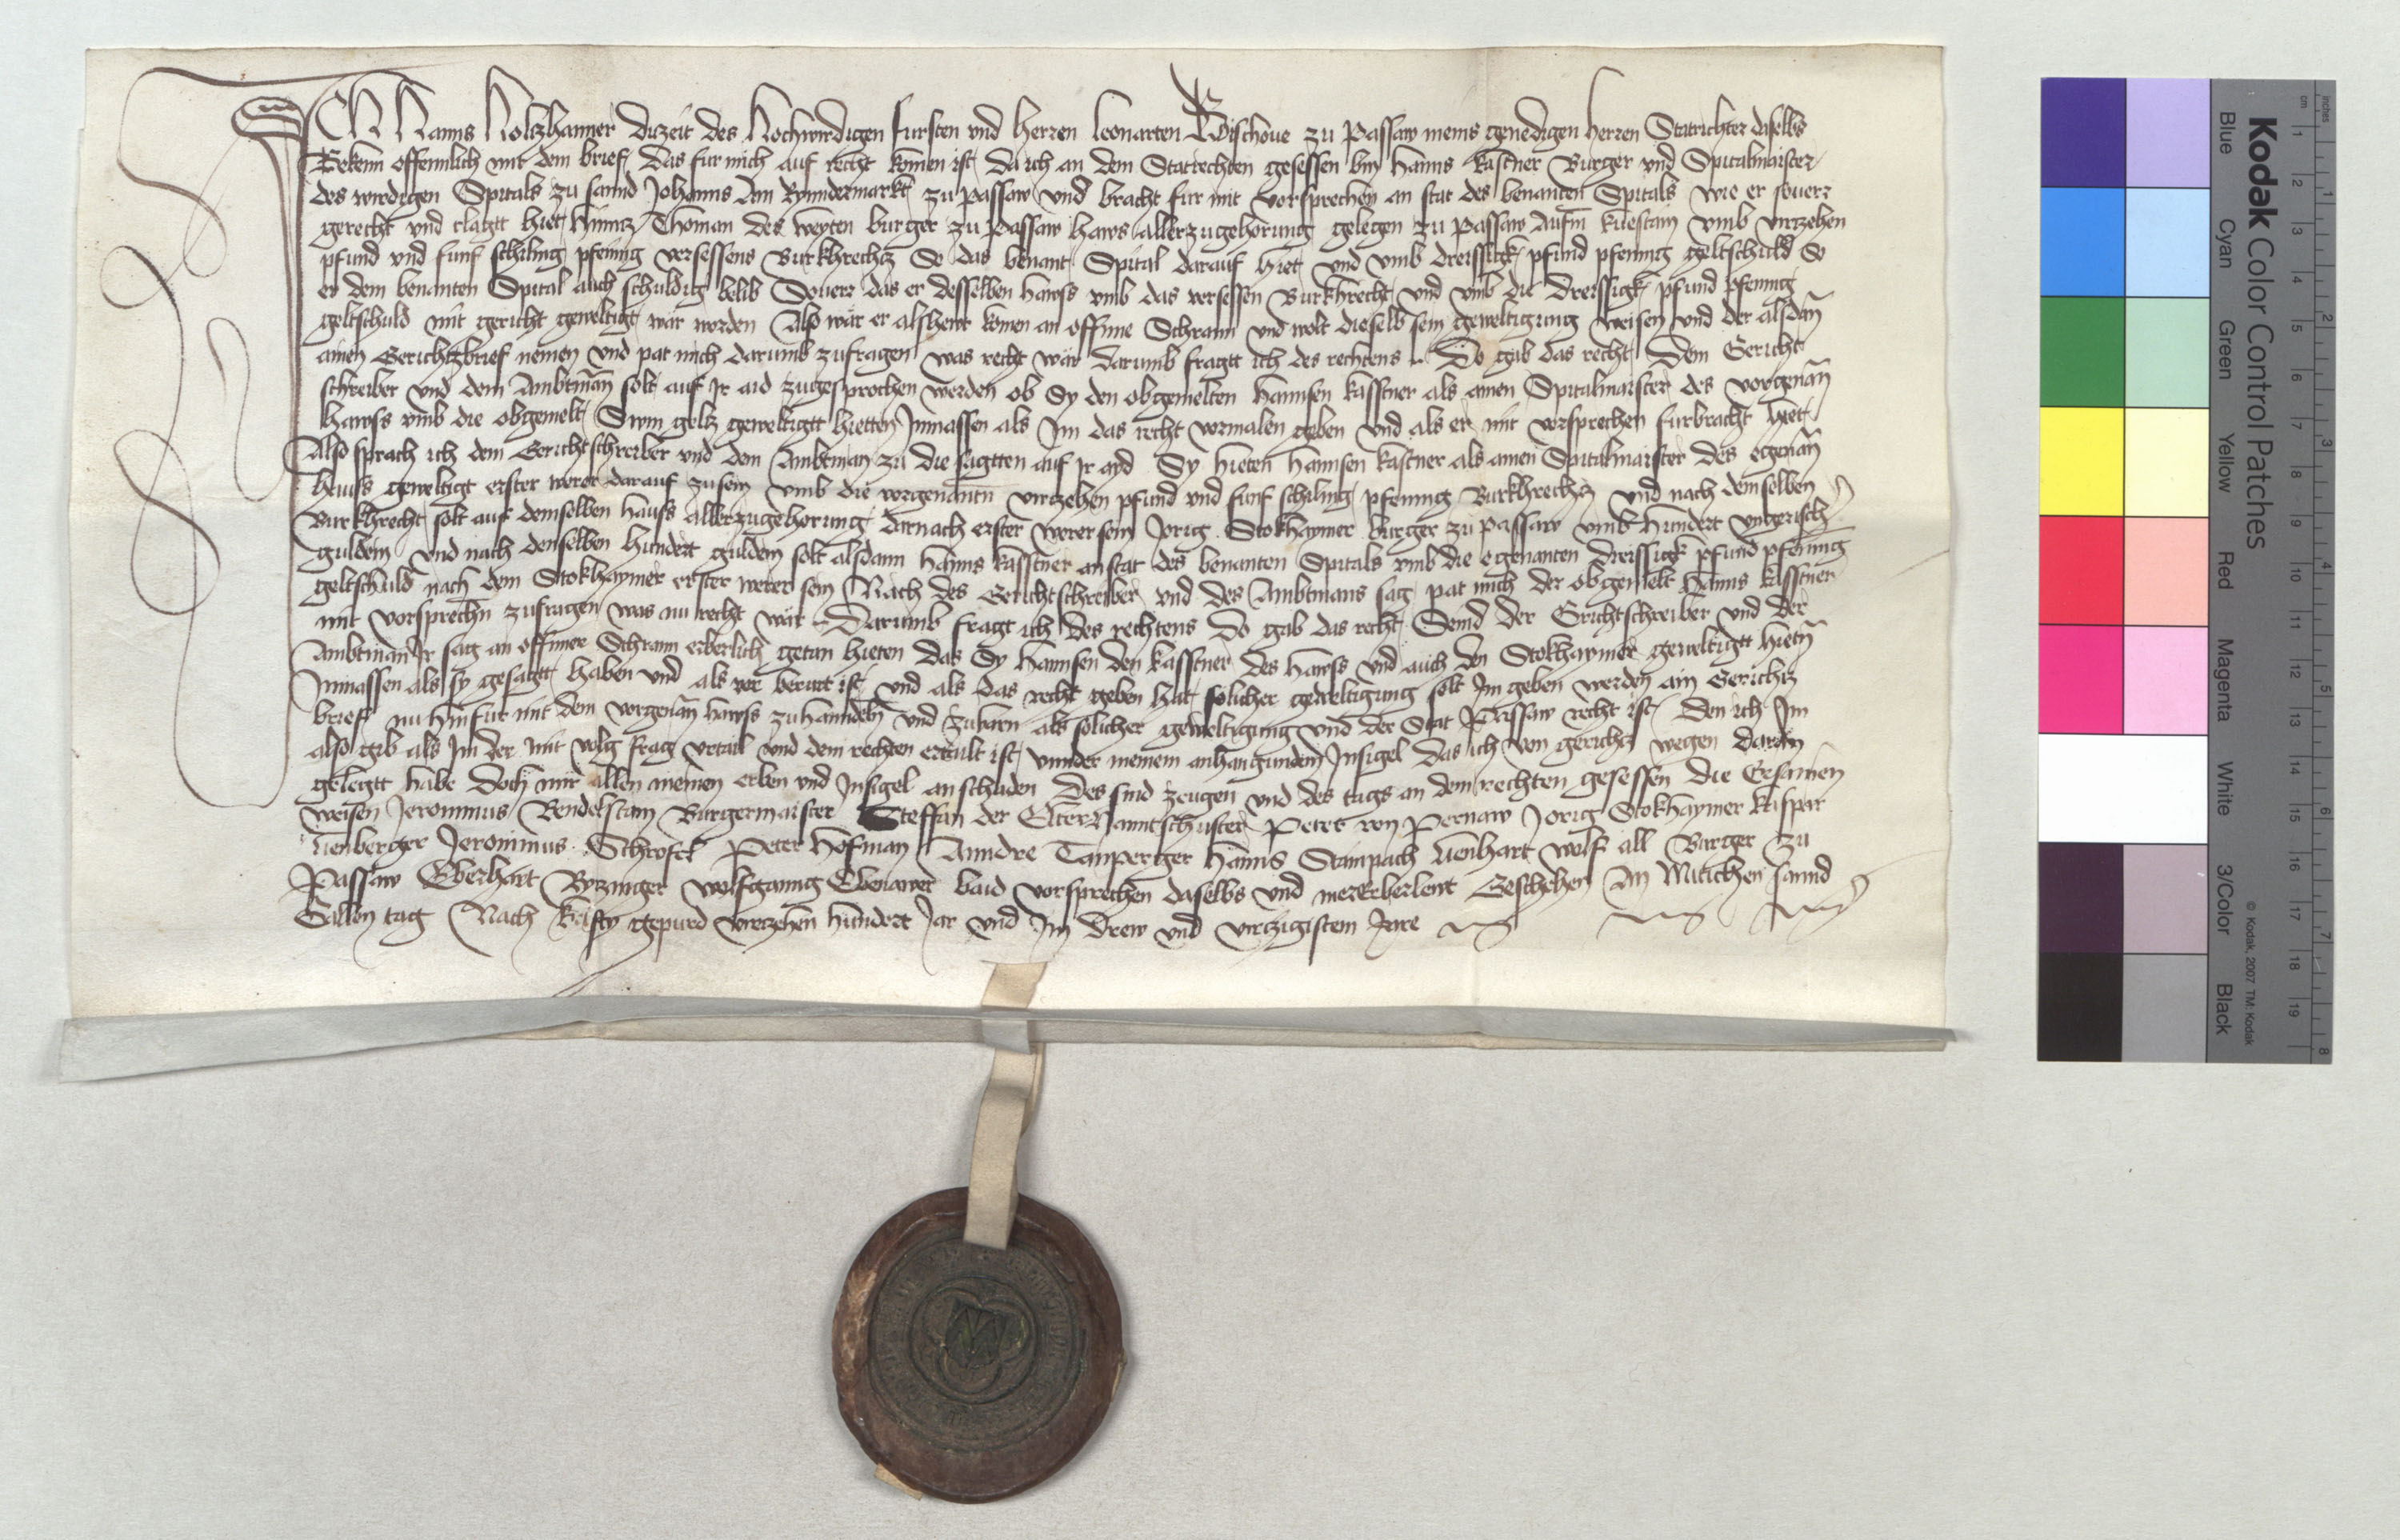 Ich Hanns Holtzhaimer dizeit des Hochwirdigen fursten und herren leonarten Bischove zu Passaw meins genedigen herren Statrichter daselbs
Bekenn offennlich mit dem brief, das fur mich auf recht komen ist, da ich an dem Statrechten gesessen bin Hanns Kastner Burger und Spitalmaister
des wirdigen Spitals zu sannd Johanns Am Rynndermarkt zu Passaw und bracht fur mit vorsprechen an stat des benanten Spitals wie er souerr
gerecht und clagtt hiet hinntz Thoman des weyten burger zu Passaw haws allerzugehorung gelegen zu Passaw Aufm umb virtzehen
pfund und funf schiling pfening versessens Burkhrechtz So das benant Spital darauf hiet und umb dreissigk pfund pfening geltschuld So
er dem benanten Spital auch schuldig belib Souerr das er desselben hawss umb das versessen Burkhrecht und umb die dreissigk pfund pfening
geltschuld mit gericht geweltigt wär worden Also wär er alsheut komen an offnne Schrann und wolt dieselb sein geweltigung weisen und der alsdan
ainen Gerichtzbrief nemen und pat mich darumb zufragen was recht wär darumb fragtt ich des rechtens Do gab das recht Dem Gericht
schreiber und dem Ambtman solt auf Ir aid zugesprochen werden ob Sy den obgemelten Hannsen kasstner als ainen Spitalmaister des vorgenan
hawss umb die obgemelt Sum geltz geweltigtt hietten Inmassen als Im das recht vormalen geben und als er mit vorsprechen furbracht hiet
Also sprach ich dem Gerichtschreiber und dem Ambtman zu die sagtten auf Ir ayd Sy hieten Hannsen kastner als ainen Spitalmaister des egenan
hawss geweltigt erster werer darauf zusein umb die vorgenantn virtzehen pfund und funf schiling pfening Burkhrechtz und nach demselben
Burkhrecht solt auf demselben hauss allerzugehorung darnach erster werer sein Jorig Stokhaymer burger zu passaw umb hundert ungerisch
guldein und nach denselben hundert guldein solt alsdann Hanns kasstner an stat des benanten Spitals umb die egenanten dreissigk pfund pfening
geltschuld nach dem Stokhaymer erster werer sein Nach des Gerichtschreiber und des Ambtmans sag pat mich der obgemelt Hanns kasstner
mit vorsprechn zufragen was nu recht wär Darumb fragt ich des rechtens Do gab das recht Seind der Grichtschreiber und der
Ambtman Ir sag an offnner Schrann erberlich getan hieten das Sy Hannsen den kasstner des hawss und auch den Stokhaymer geweltigtt hietn
Inmassen als sy gesagtt haben und als vor berurt ist und als das recht geben hat solicher geweltigung solt Im geben werden ain Gerichtz
brief nu hinfur mit dem vorgenan hawss zuhanndeln und zufarn als solicher geweltigung und der Stat Passaw recht ist Den ich Im
also gib als Im der mit volg frag urtail und dem rechten ertailt ist unnder meinem anhangunden Insigel das ich von gerichtz wegen daran
gelegtt habe Doch mir allen meinen erben und Insigel an schaden Des sind zeugen und des tags an dem rechten gesessen Die Ersamen
weisen Jeronimus Rendelstain Burgermaister Steffan der Elter Hanntschuster Peter von Pernaw Jorig Stokhaymer kaspar
Jeronimus Schrofel Peter Hofman Anndre Tanperger Hanns Stainpach lienhart wolf all Burger zu
Passaw Eberhart Ryzinger wolfganng Ebenawer baid vorsprechen daselbs und mererberlewt Geschehen An Mitichen sannd
Gallen tag Nach kristy gepurd virtzehen hundert Jar und Im drew und virtzigistem Jare
Kodak Color Control Patches
Blue Cyan Green Yellow Red Magenta White 3/Color Black
© Kodak, 2007 TM: Kodak
cm 1 2 3 4 5 6 7 8 9 10 11 12 13 14 15 16 17 18 19
inches 1 2 3 4 5 6 7 8